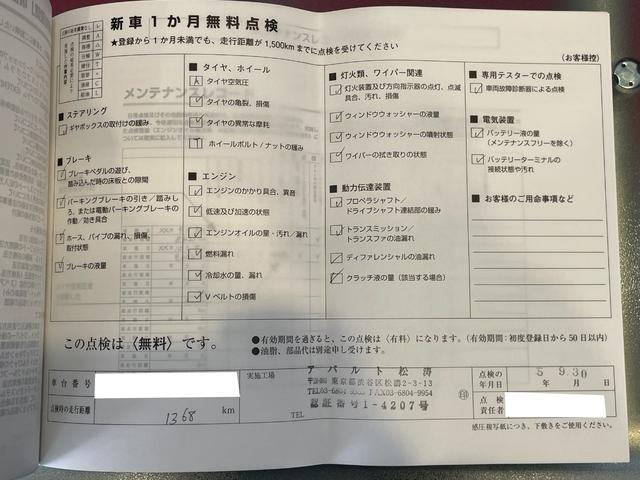 新車1か月無料点検
★登録から1か月未満でも、走行距離が1,500kmまでに点検を受けてください
(お客様控)
■ ステアリング
ギヤボックスの取付けの緩み
■ ブレーキ
ブレーキペダルの遊び、
踏み込んだ時の床板との隙間
パーキングブレーキの引き/踏みし
ろ、または電動パーキングブレーキの
作動/効き具合
ホース、パイプの漏れ、損傷、
取付状態
ブレーキの液量
■ タイヤ、ホイール
タイヤ空気圧
タイヤの亀裂、損傷
タイヤの異常な摩耗
ホイールボルト/ナットの緩み
■ エンジン
エンジンのかかり具合、異音
低速及び加速の状態
エンジンオイルの量・汚れ/漏れ
燃料漏れ
冷却水の量、漏れ
Vベルトの損傷
■ 灯火類、ワイパー関連
灯火装置及び方向指示器の点灯、点滅
具合、汚れ、損傷
ウィンドウォッシャーの液量
ウィンドウォッシャーの噴射状態
ワイパーの拭き取りの状態
■ 動力伝達装置
プロペラシャフト/
ドライブシャフト連結部の緩み
トランスミッション/
トランスファの油漏れ
ディファレンシャルの油漏れ
クラッチ液の量(該当する場合)
■ 専用テスターでの点検
車両故障診断器による点検
■ 電気装置
バッテリー液の量
(メンテナンスフリーを除く)
バッテリーターミナルの
接続状態や汚れ
■ お客様のご用命事項など
この点検は〈無料〉です。
●有効期間を過ぎると、この点検は〈有料〉になります。(有効期間:初度登録日から50日以内)
●油脂、部品代は別途申し受けます。
車台番号
点検時の走行距離
1368 km
実施工場
アバルト松濤
東京都渋谷区松濤2-3-13
FAX03-6804-9954
認証番号1-4207号
TEL
印
点検の
年月日
5 9.30
年 月 日
点検
責任者
感圧複写紙につき、下敷きをご使用ください。